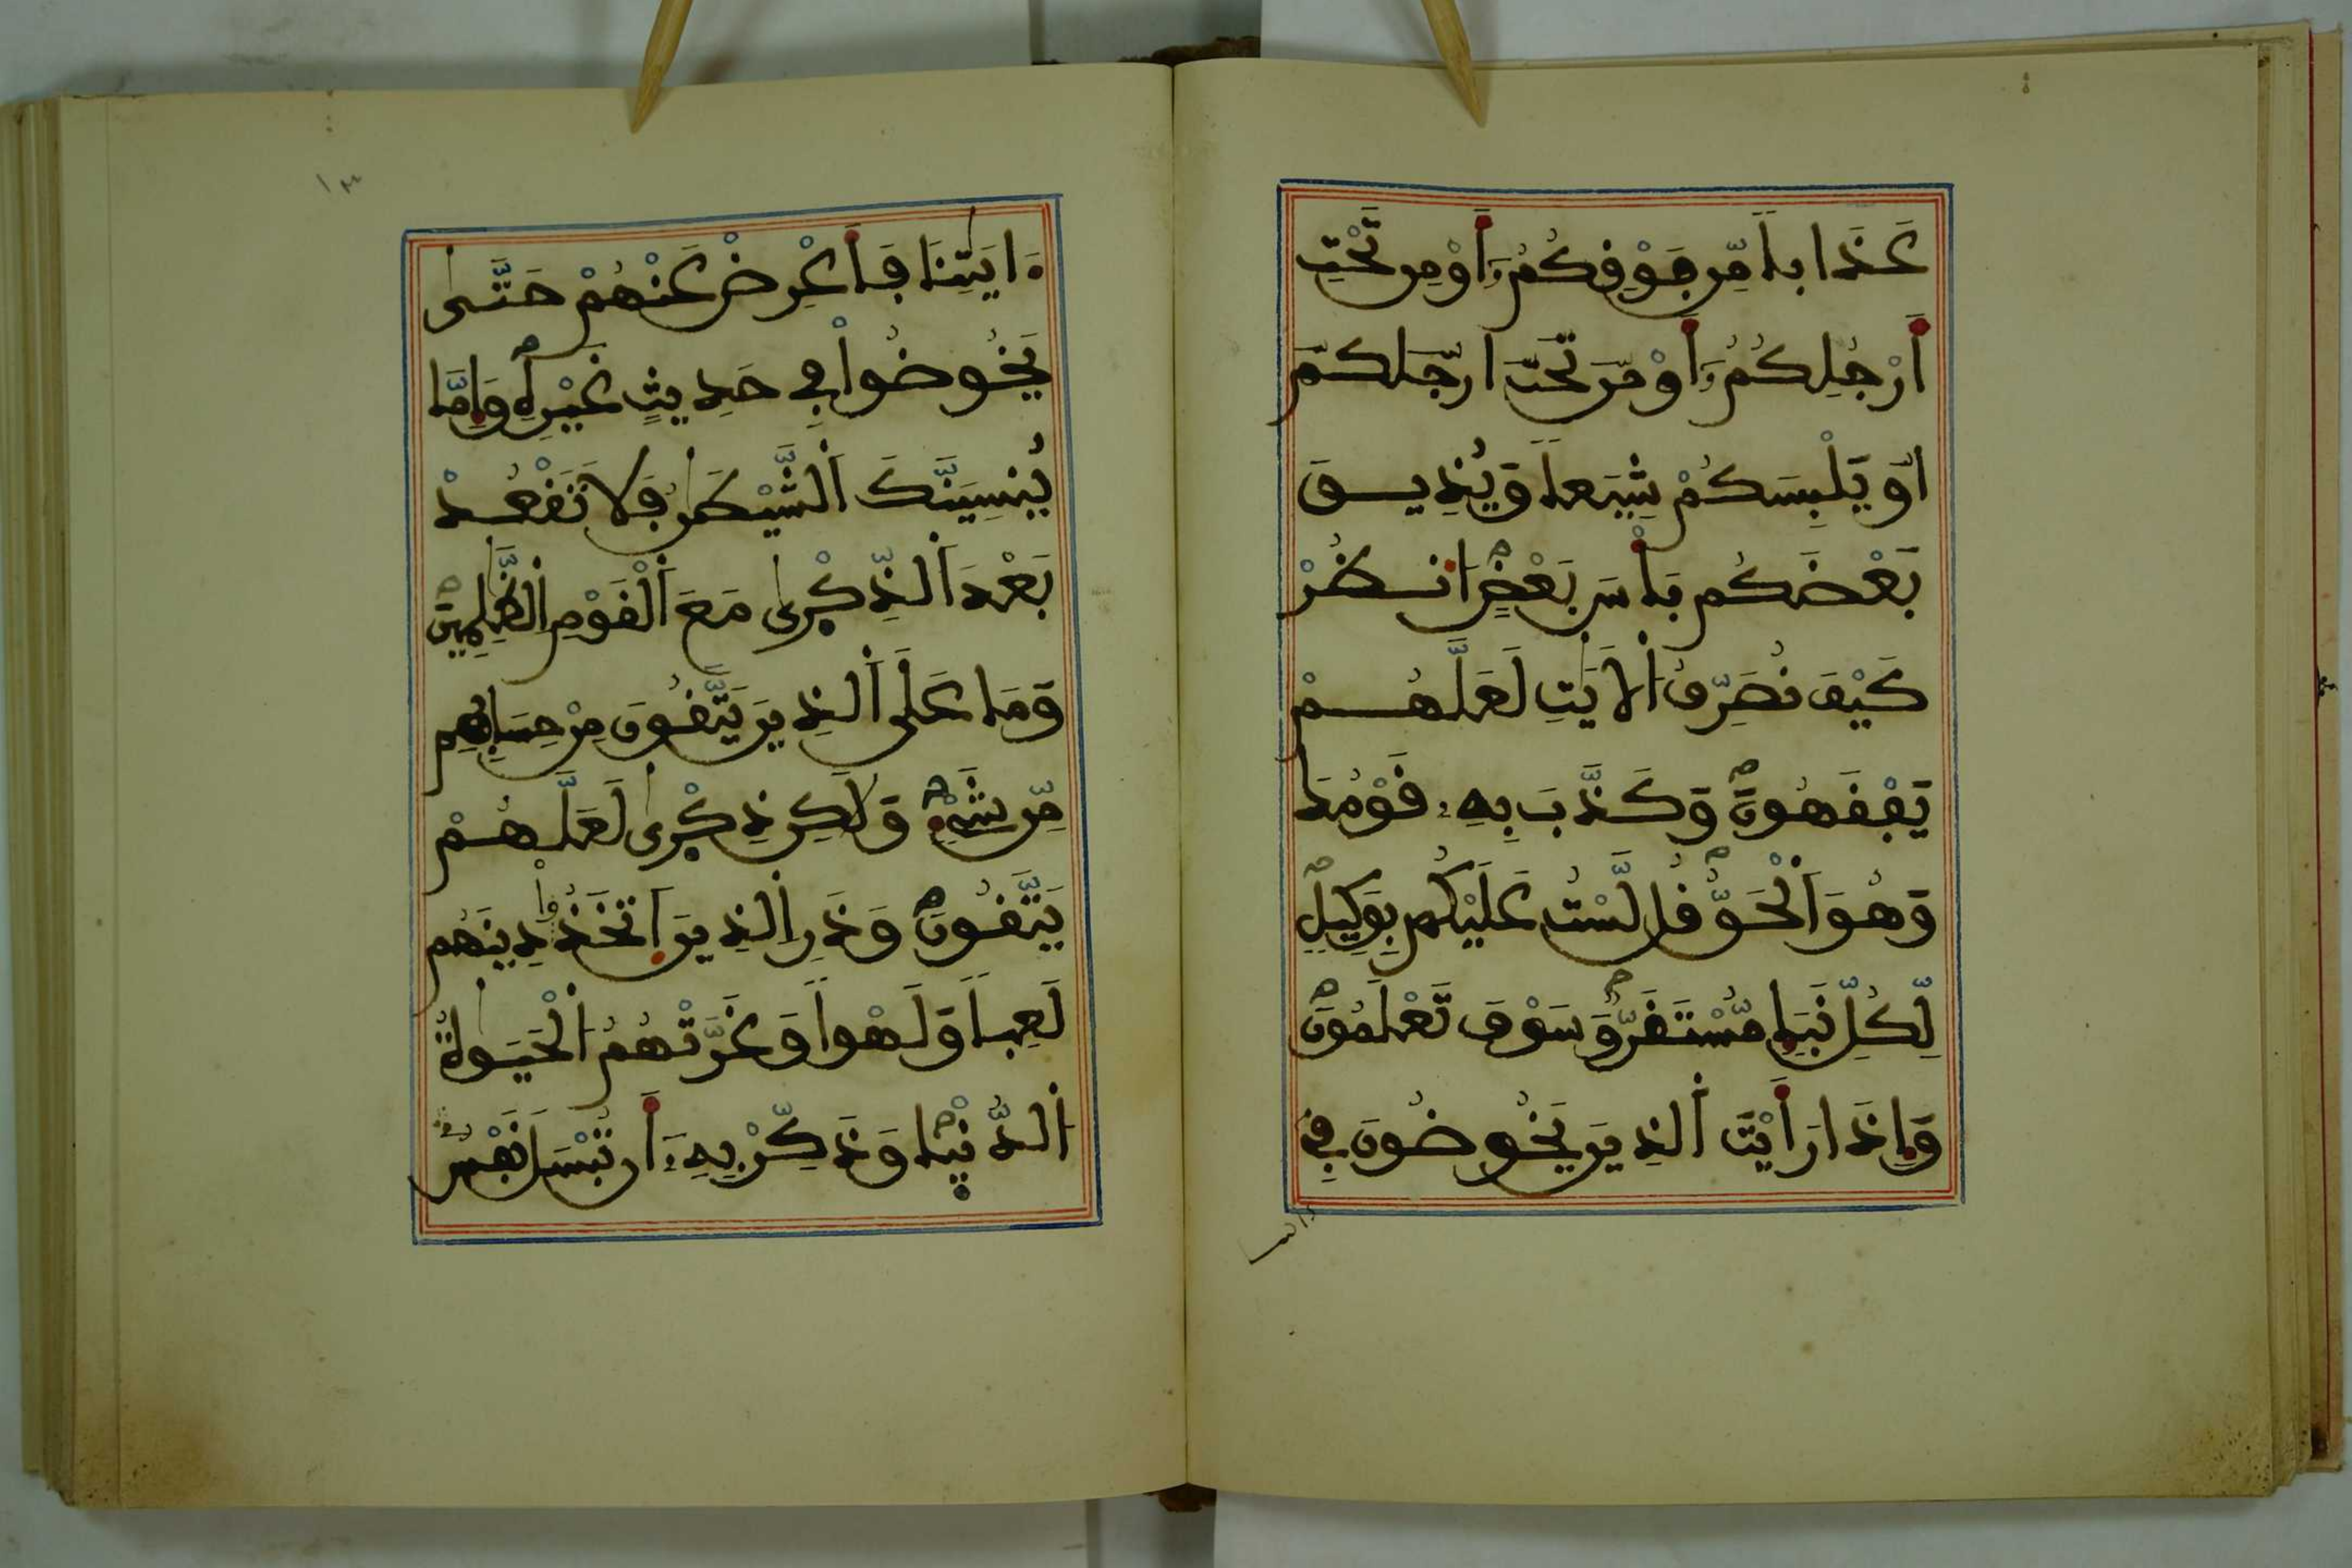 عَذَابا مِّن فَوْقِكُمُۥٓ أَوْ مِن تَحْتِ
أَرْجُلِكُمُۥٓ أَوْ مِّن تَحْتِ ارْجُلِكُمُ
أَوْ يَلْبِسَكُمْ شِيَعا وَيُذِيقَ
بَعْضَكُم بَأْسَ بَعْضٍ انظُرْ
كَيْفَ نُصَرِّفُ اُلَايَٰتِ لَعَلَّهُمْ
يَفْقَهُونَ وَكَذَّبَ بِهِۦ قَوْمُكَ
وَهُوَ اَلْحَقُّ قُل لَّسْتُ عَلَيْكُم بِوَكِيلٍ
لِّكُلِّ نَبَإٍ مُّسْتَقَرٌّ وَسَوْفَ تَعْلَمُونَ
وَإِذَا رَأَيْتَ اَلذِينَ يَخُوضُونَ فِے
ءَايَٰتِنَا فَأَعْرِضْ عَنْهُمْ حَتَّىٰ
يَخُوضُواْ فِے حَدِيثٍ غَيْرِهِ وَإِمَّا
يُنسِيَنَّكَ اَلشَّيْطَٰنُ فَلَا تَقْعُدْ
بَعْدَ اَلذِّكْر۪ىٰ مَعَ اَلْقَوْمِ اِلظَّٰلِمِينَ
وَمَا عَلَى اَلذِينَ يَتَّقُونَ مِنْ حِسَابِهِم
مِّن شَےْءٍ وَلَٰكِن ذِكْر۪ىٰ لَعَلَّهُمْ
يَتَّقُونَ وَذَرِ اِلذِينَ اَتَّخَذُواْ دِينَهُم
لَعِبا وَلَهْوا وَغَرَّتْهُمُ اُلْحَيَوٰةُ
اُلدُّنْي۪ا وَذَكِّرْ بِهِۦٓ أَن تُبْسَلَ نَفْسٌ